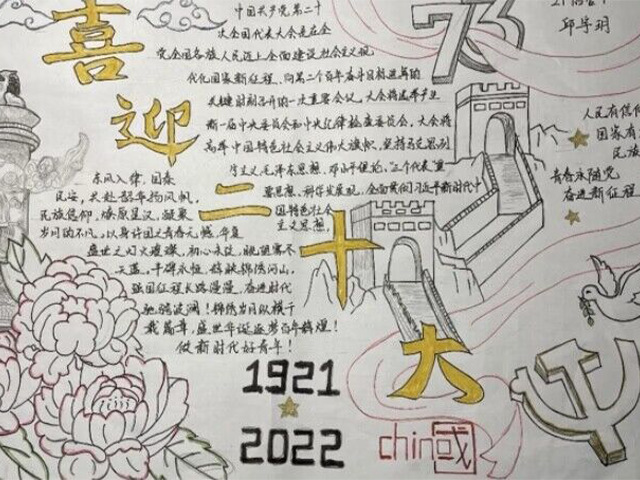 喜迎二十大
中国共产党第二十
次全国代表大会是在全
党全国各族人民迈上全面建设社会主义现
代化国家新征程、向第二个百年奋斗目标进军的
关键时刻召开的一次重要会议。大会将选举产生
新一届中央委员会和中央纪律检查委员会。大会将
高举中国特色社会主义伟大旗帜,坚持马克思列
宁主义、毛泽东思想、邓小平理论、"三个代表"重
要思想、科学发展观,全面贯彻习近平新时代中
国特色社会
主义思想,
东风入律,国泰
民安,
民族信仰,燎原星汉,凝聚
岁月的不凡,以身许国之青春无憾,华夏
盛世之灯火璀璨,初心永绽,眺望寰宇
天蓝,丰碑永恒,锦映锦绣河山,
强国征程长路漫漫,奋进时代
驰骋波澜!锦绣岁月纵横千
载篇章,盛世华诞逐梦百年辉煌!
做新时代好青年!
73
邱宇玥
人民有信仰
国家有
民族
青春永随党
奋进新征程
1921
2022
chin国